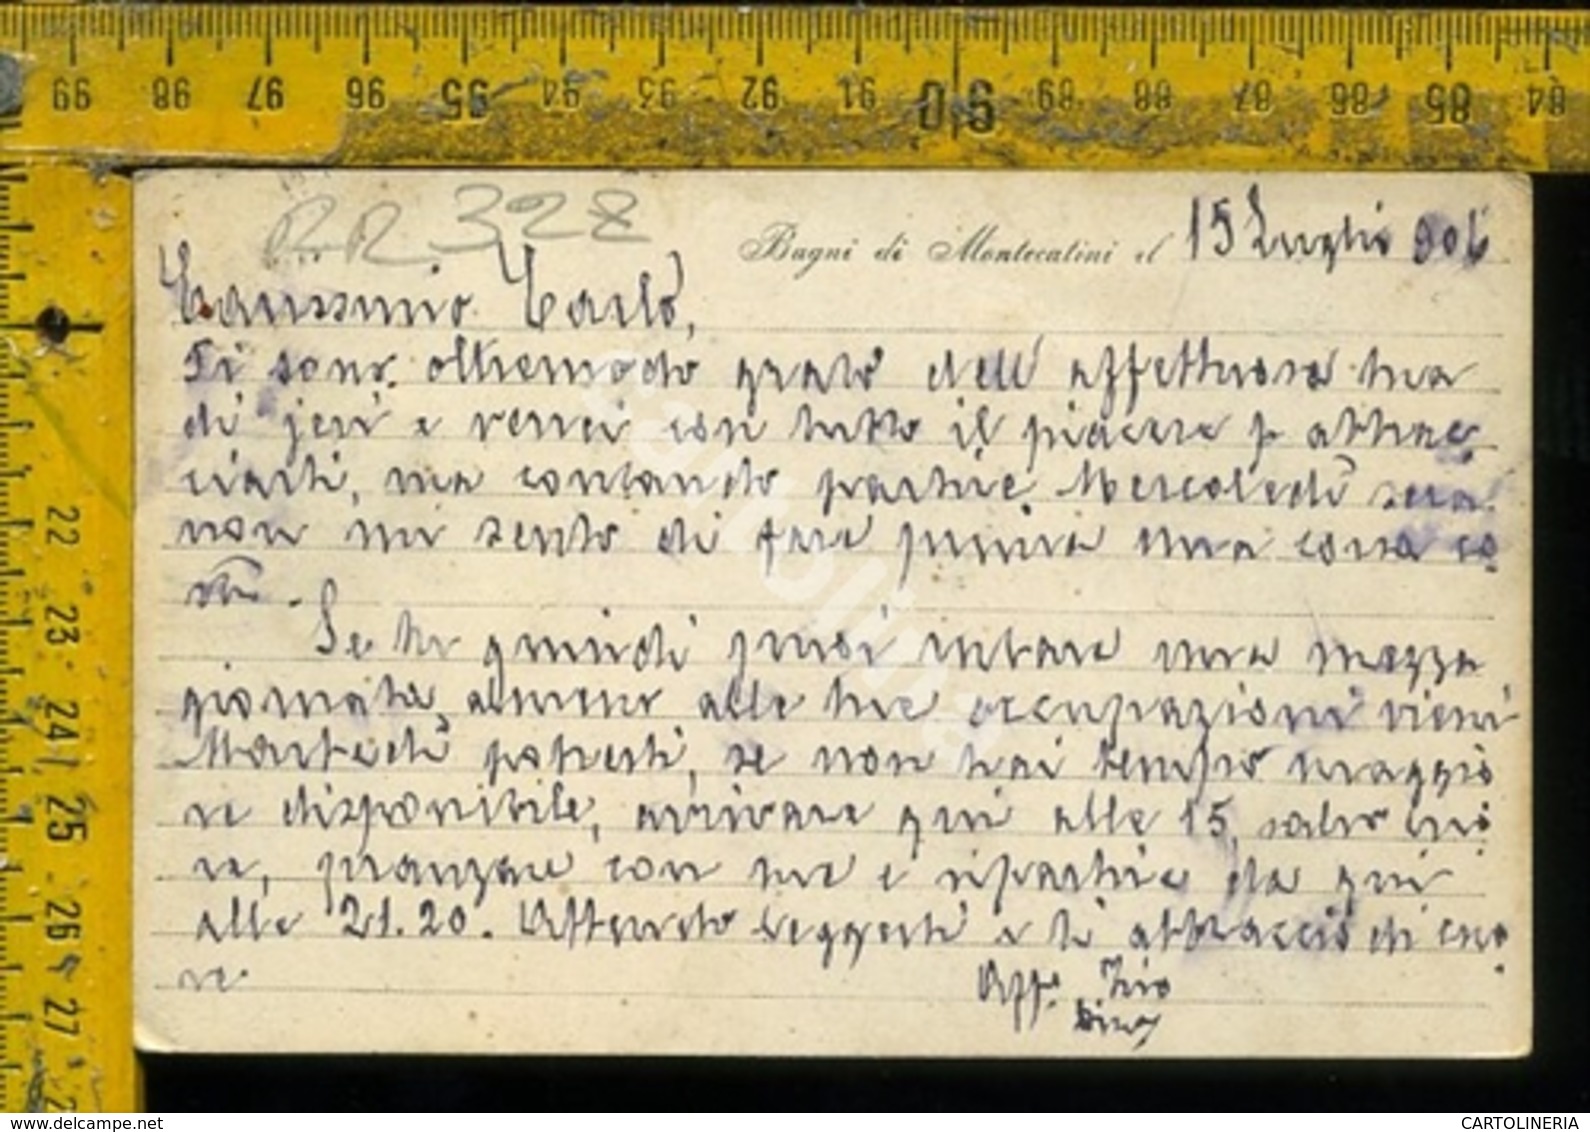 99 98 97 96 95 94 93 92 91 90 89 88 87 86 85 84
RR 328
Bagni di Montecatini il 15 Luglio 906
Carissimo Carlo,
Ti sono oltremodo grato dell'affettuosa tua
di jeri e verrei con tutto il piacere p abbrac
ciarti, ma contando partire Mercoledì sera
non mi sento di fare prima una corsa co
stì.
Se tu quindi puoi rubare una mezza
giornata almeno alle tue occupazioni vieni
Martedì potresti, se non hai tempo maggio
re disponibile, arrivare qui alle 15, salvo erro
re, pranzare con me e ripartire da qui
alle 21.20. Attendo leggerti e ti abbraccio di cuo
re
Aff. Zio
22
23
24
25
26
27
cartolina
delcampe.net
CARTOLINERIA